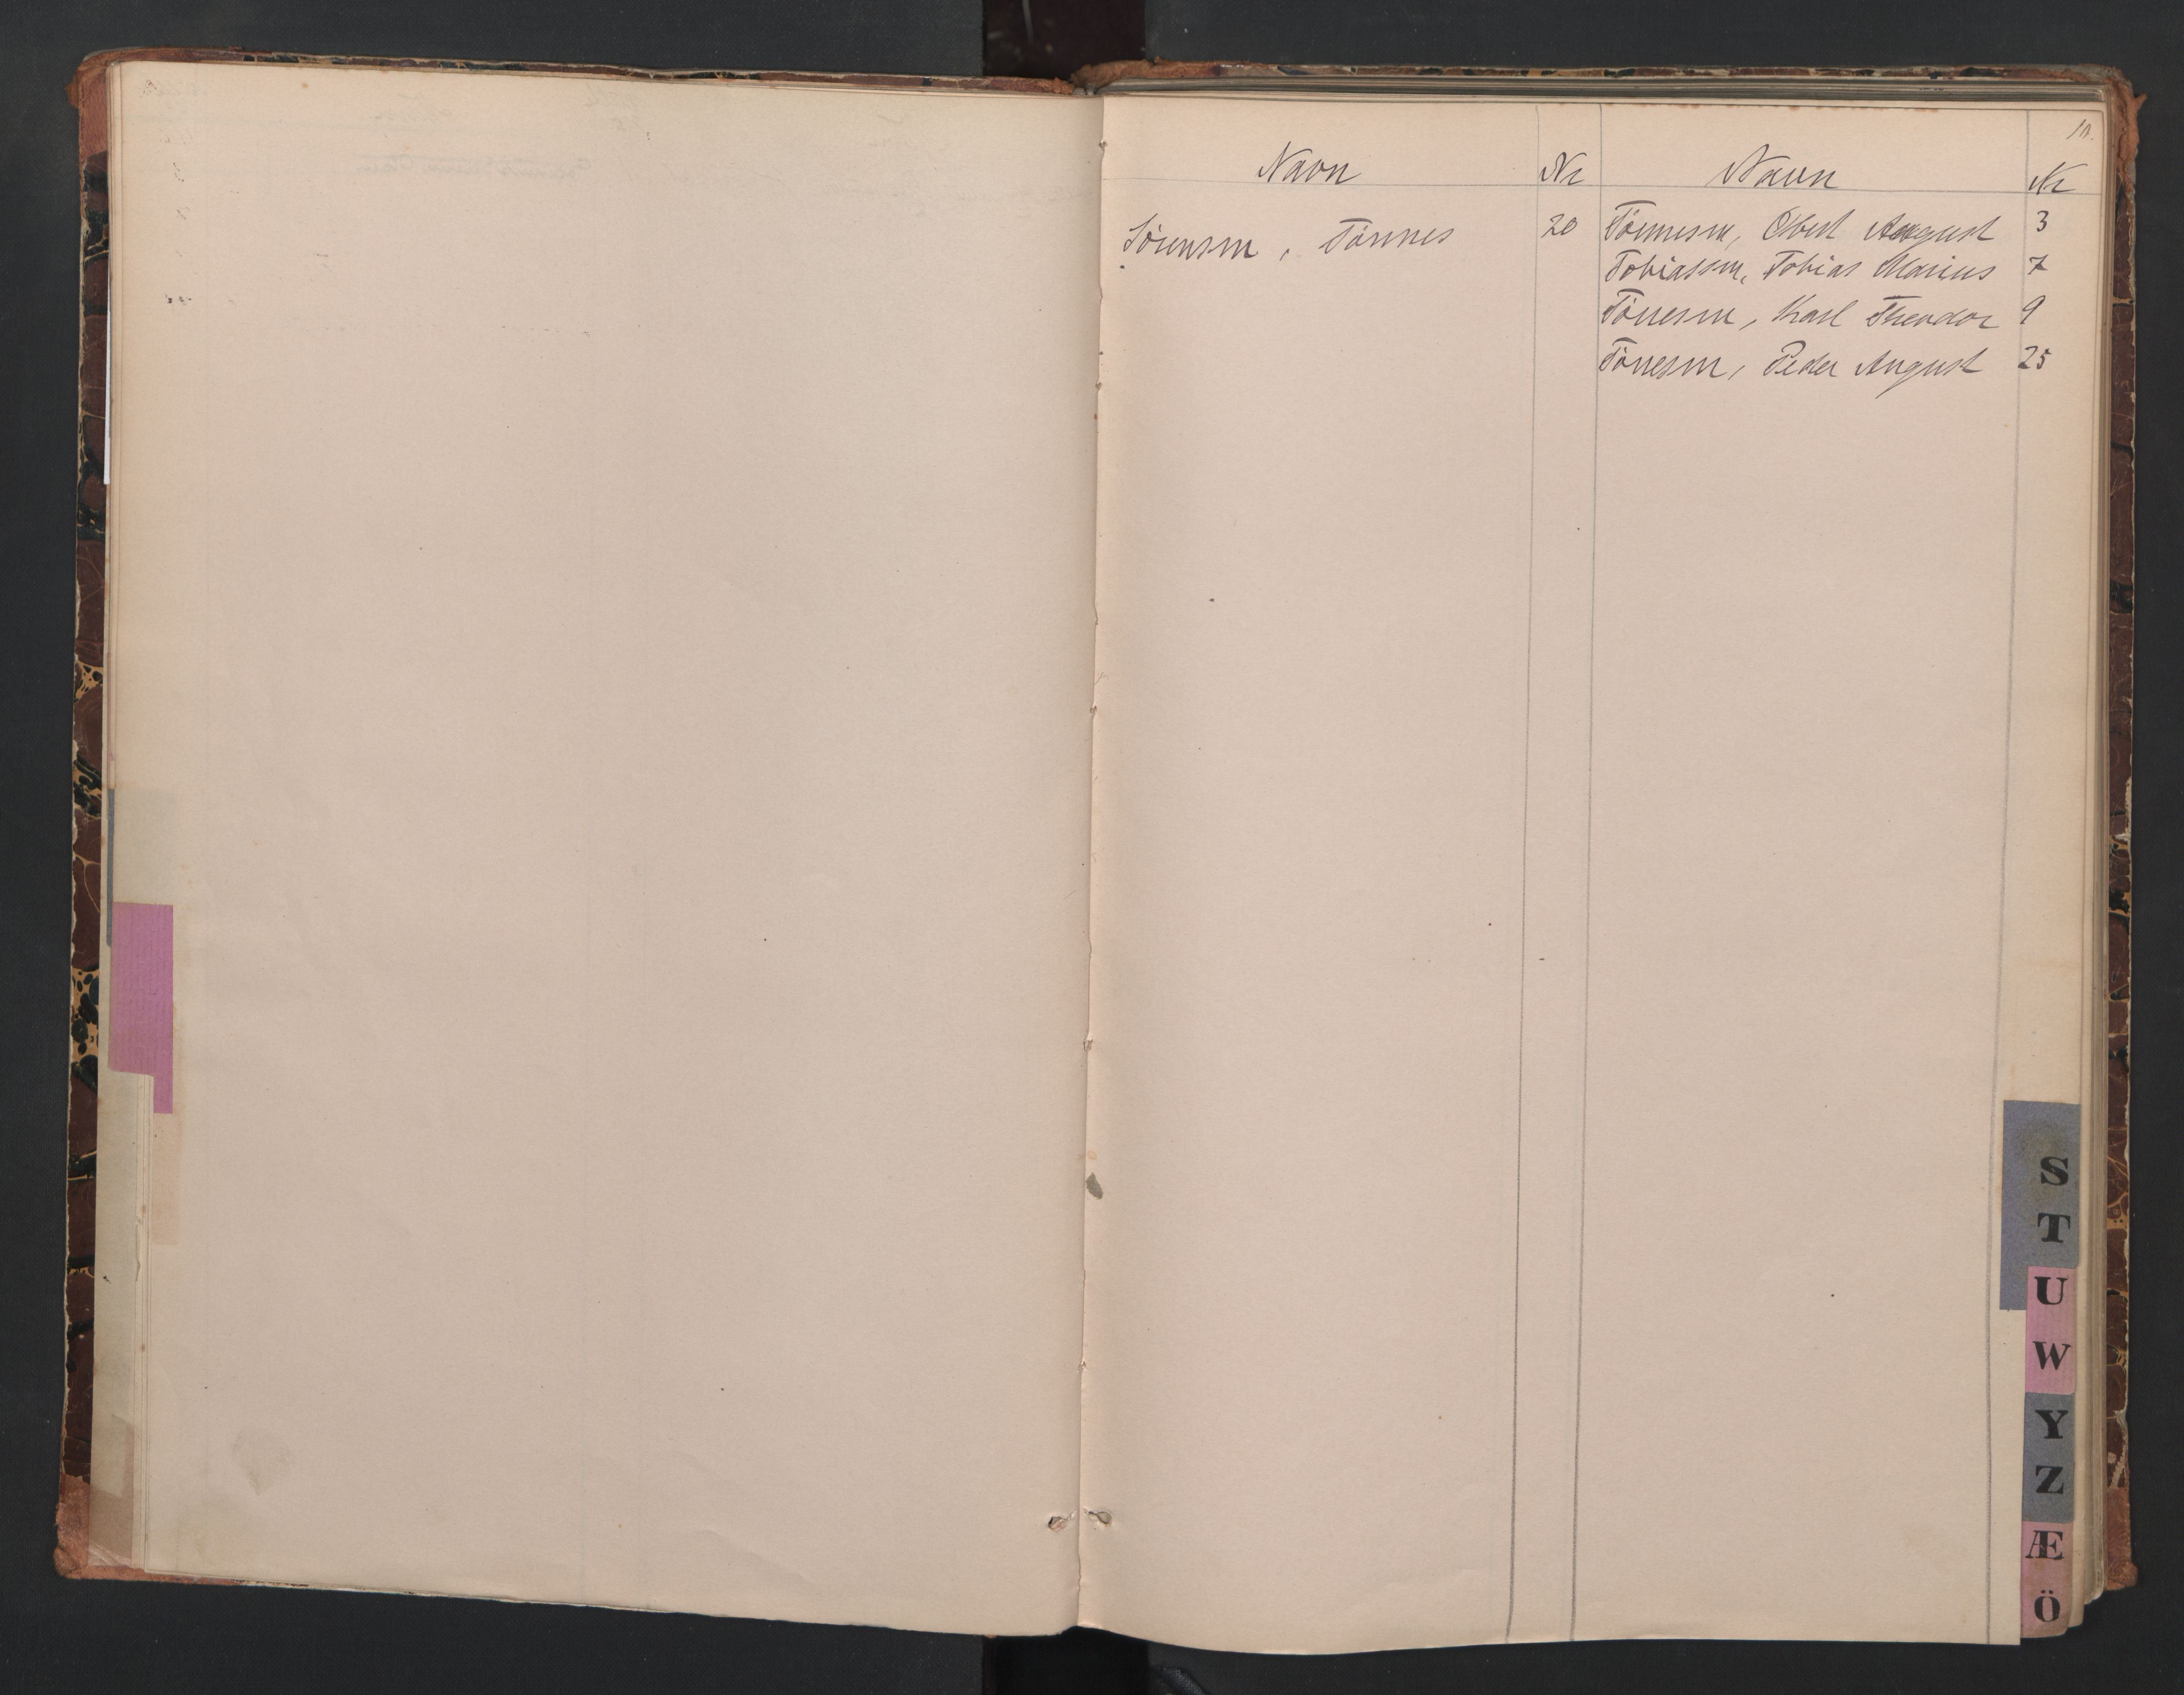 10.
Navn Nr Navn Nr
Sørensen, Tønnes 20 Tønnesen, Obert August 3
Tobiassen, Tobias Marius 7
Tønesen, Karl Theodor 9
Tønesen, Peder August 25
S
T
U
W
Y
Z
Æ
Ö